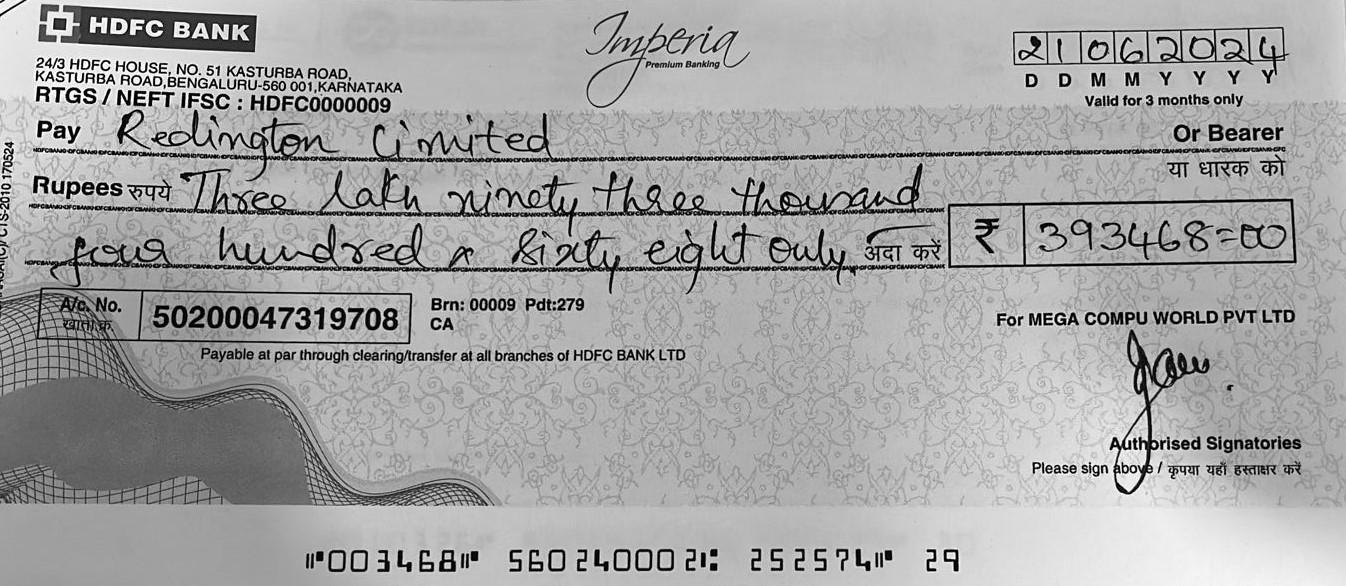 HDFC BANK
Imperia
Premium Banking
21062024
D D M M Y Y Y Y
Valid for 3 months only
24/3 HDFC HOUSE, NO. 51 KASTURBA ROAD,
KASTURBA ROAD,BENGALURU-560 001,KARNATAKA
RTGS / NEFT IFSC : HDFC0000009
Pay Redington Limited Or Bearer
या धारक को
Rupees रुपये Three lakh ninety three thousand
four hundred & sixty eight only अदा करें ₹ 393468=00
A/c. No. 50200047319708
खाता क्र.
Brn: 00009 Pdt:279
CA
Payable at par through clearing/transfer at all branches of HDFC BANK LTD
For MEGA COMPU WORLD PVT LTD
Authorised Signatories
Please sign above / कृपया यहाँ हस्ताक्षर करें
⑈003468⑈ 560240002⑆ 252574⑈ 29